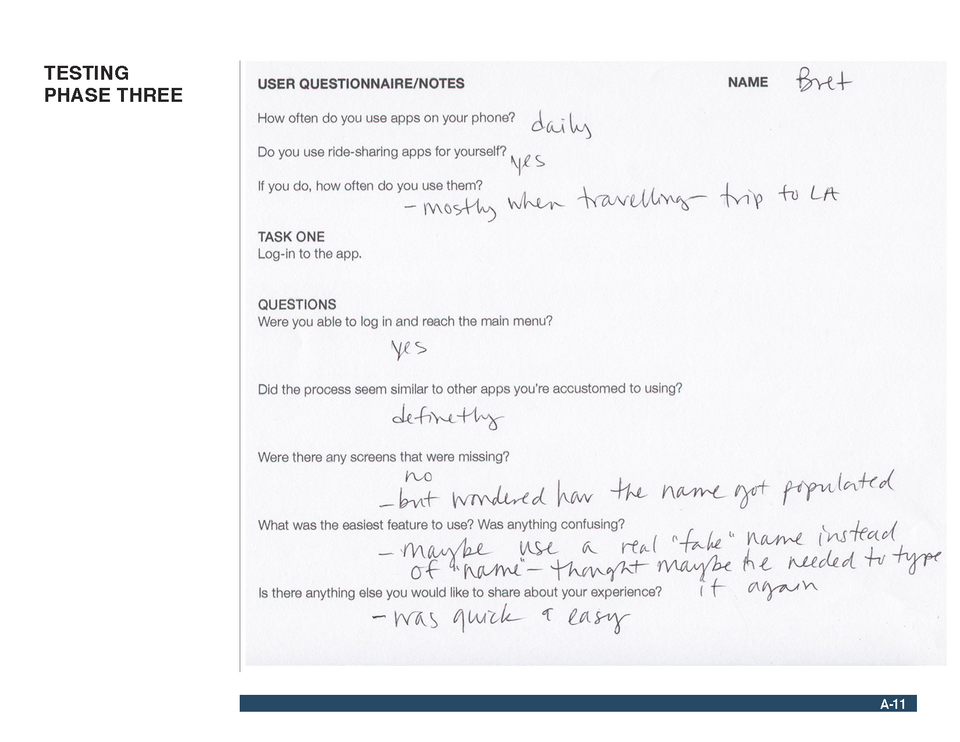 TESTING
PHASE THREE
USER QUESTIONNAIRE/NOTES NAME Bret
How often do you use apps on your phone? daily
Do you use ride-sharing apps for yourself? yes
If you do, how often do you use them?
- mostly when travelling - trip to LA
TASK ONE
Log-in to the app.
QUESTIONS
Were you able to log in and reach the main menu?
yes
Did the process seem similar to other apps you're accustomed to using?
definetly
Were there any screens that were missing?
no
- but wondered how the name got populated
What was the easiest feature to use? Was anything confusing?
- maybe use a real "fake" name instead
of "name" - thought maybe he needed to type
it again
Is there anything else you would like to share about your experience?
- was quick & easy
A-11